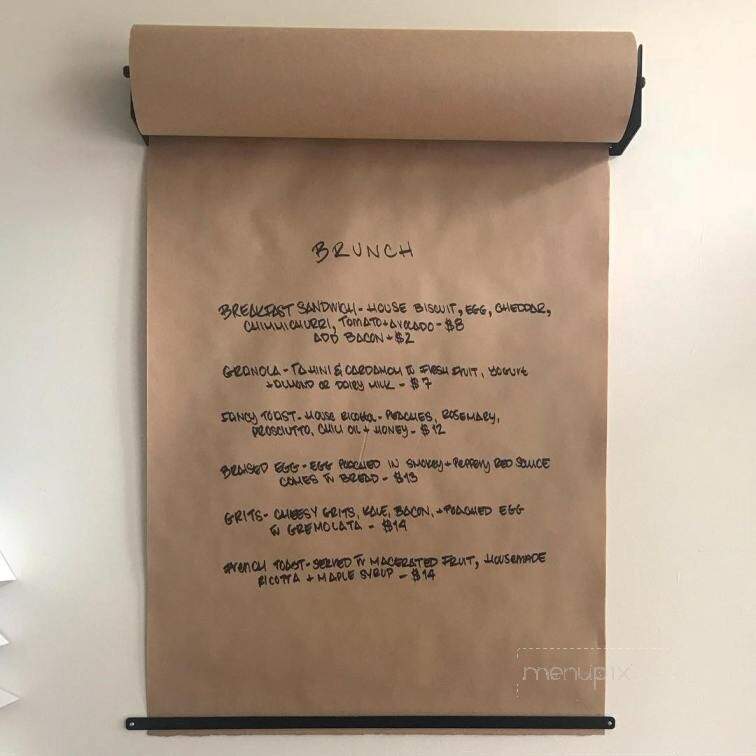 BRUNCH
BREAKFAST SANDWICH - HOUSE BISCUIT, EGG, CHEDDAR,
CHIMMICHURRI, TOMATO + AVOCADO - $8
ADD BACON + $2
GRANOLA - TAHINI & CARDAMOM W FRESH FRUIT, YOGURT
+ ALMOND OR DAIRY MILK - $7
FANCY TOAST - HOUSE RICOTTA - PEACHES, ROSEMARY,
PROSCIUTTO, CHILI OIL + HONEY - $12
BRAISED EGG - EGG POACHED IN SMOKEY + PEPPERY RED SAUCE
COMES W BREAD - $13
GRITS - CHEESY GRITS, KALE, BACON, + POACHED EGG
W GREMOLATA - $14
FRENCH TOAST - SERVED W MACERATED FRUIT, HOUSEMADE
RICOTTA + MAPLE SYRUP - $14
menupix